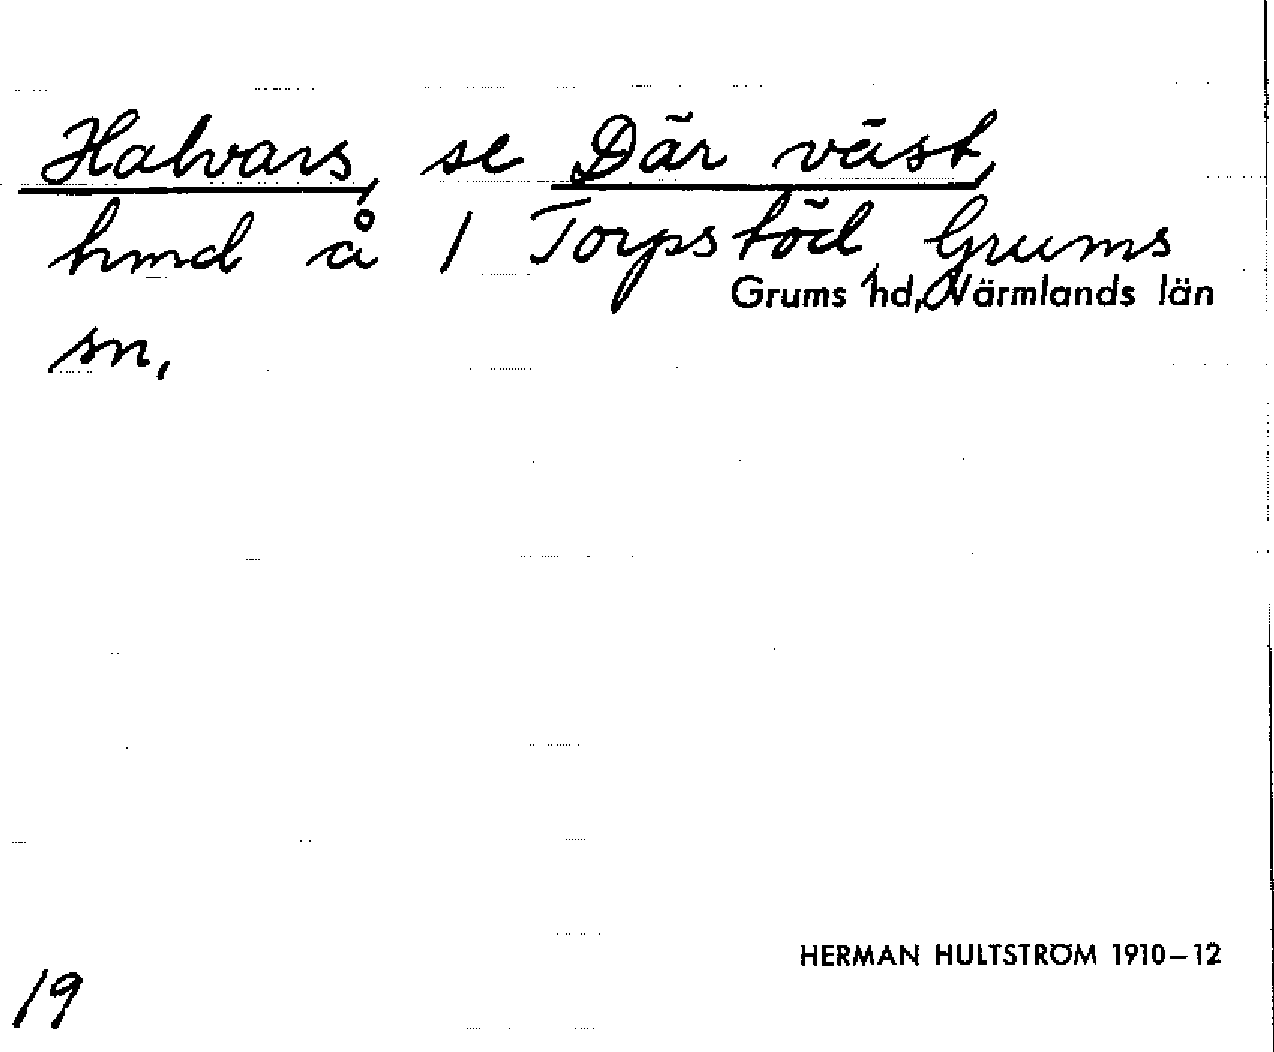 Halvars, se Där väst,
hmd å 1 Torpstöd, Grums
Grums hd, Värmlands län
sn,
HERMAN HULTSTRÖM 1910–12
19